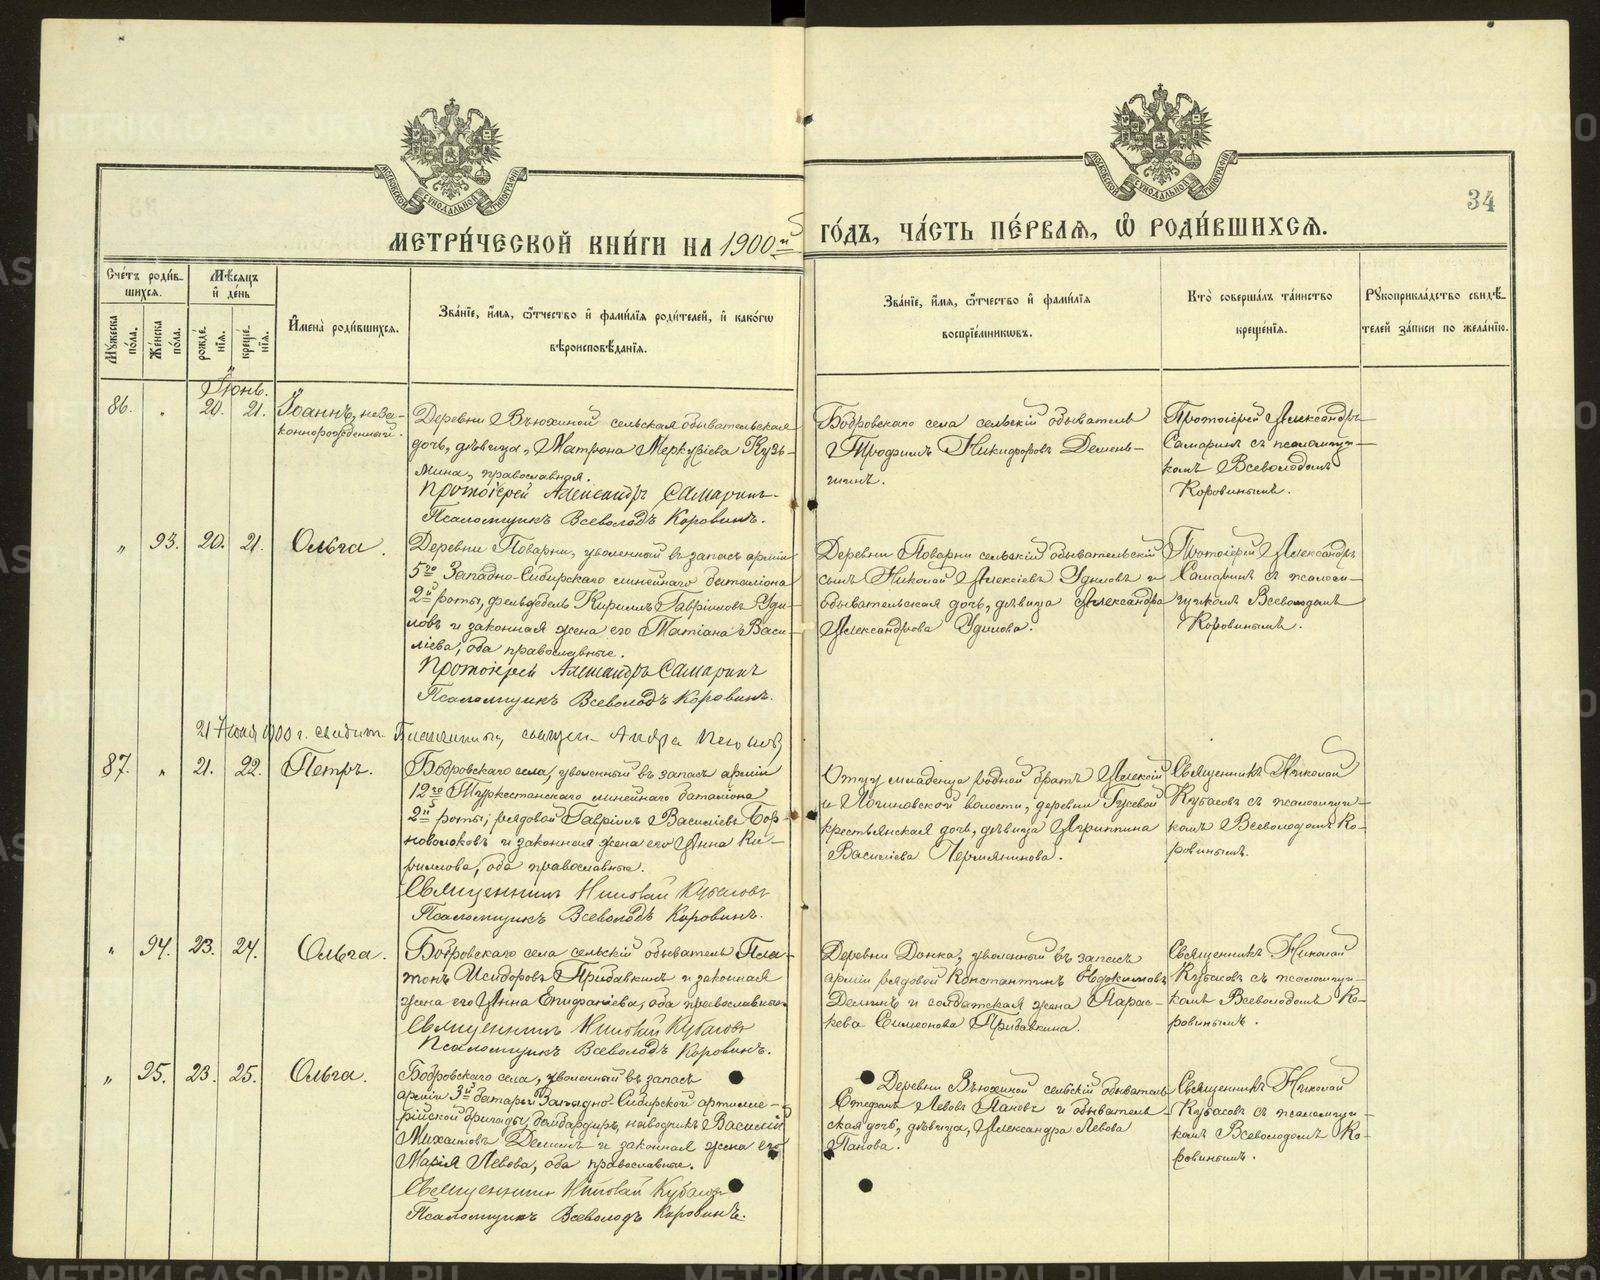 34
МЕТРИ́ЧЕСКОЙ КНИ́ГИ НА 1900й ГО́ДЪ, ЧА́СТЬ ПЕ́РВАЯ, Ѡ РОДИ́ВШИХСЯ.
Сче́тъ роди́в-
шихся.
Мѣ́сяцъ
и҆ де́нь
Мꙋ́жеска
по́ла.
Же́нска
по́ла.
рожде́-
нїя.
креще́-
нїя.
И҆мена̀ роди́вшихся.
Зва́нїе, и҆́мя, ѻ҆́тчество и҆ фамилїя роди́телей, и҆ како́гѡ
вѣроисповѣ́данїя.
Зва́нїе, и҆́мя, ѻ҆́тчество и҆ фами́лїя
воспрїе́мниковъ.
Кто̀ соверша́лъ та́инство
креще́нїя.
Рꙋкоприкла́дство свидѣ́-
телей за́писи по жела́нїю.
Іюнь.
86. " 20. 21. Іоаннъ, неза-
коннорожденный.
Деревни Вьюхиной сельская обывательская
дочь, дѣвица, Матрона Меркуріева Кузь-
мина, православная.
Протоіерей Александръ Самаринъ.
Псаломщикъ Всеволодъ Коровинъ.
Бобровскаго села сельскій обыватель
Трофимъ Никифоровъ Демень-
шинъ.
Протоіерей Александръ
Самаринъ съ псаломщи-
комъ Всеволодомъ
Коровинымъ.
" 93. 20. 21. Ольга.
Деревни Поварни, уволенный въ запасъ арміи
5го Западно-Сибирскаго линейнаго баталіона
2й роты, фельдфебель Кириллъ Гавріиловъ Уди-
ловъ и законная жена его Татіана Васи-
ліева, оба православные.
Протоіерей Александръ Самаринъ
Псаломщикъ Всеволодъ Коровинъ.
Деревни Поварни сельскій обывательскій
сынъ Николай Алексіевъ Удиловъ и
обывательская дочь, дѣвица Александра
Александрова Удилова.
Протоіерей Александръ
Самаринъ съ псалом-
щикомъ Всеволодомъ
Коровинымъ.
21 Іюля 1900 г. свидѣт.
87. " 21. 22. Петръ.
Бобровскаго села, уволенный въ запасъ арміи
12го Туркестанскаго линейнаго баталіона
2й роты, рядовой Гавріилъ Василіевъ Бор-
новолоковъ и законная жена его Анна Ки-
риллова, оба православные.
Священникъ Николай Кубасовъ
Псаломщикъ Всеволодъ Коровинъ.
Отцу младенца родной братъ Алексій
и Логиновской волости, деревни Гусевой
крестьянская дочь, дѣвица Агриппина
Василіева Пермянинова.
Священникъ Николай
Кубасовъ съ псаломщи-
комъ Всеволодомъ Ко-
ровинымъ.
" 94. 23. 24. Ольга.
Бобровскаго села сельскій обыватель Пла-
тонъ Исидоровъ Прибавкинъ и законная
жена его Анна Епифаніева, оба православные.
Священникъ Николай Кубасовъ
Псаломщикъ Всеволодъ Коровинъ.
Деревни Донка, уволенный въ запасъ
арміи рядовой Константинъ Евдокимовъ
Деминъ и солдатская жена Парас-
кева Симеонова Прибавкина.
Священникъ Николай
Кубасовъ съ псаломщи-
комъ Всеволодомъ Ко-
ровинымъ.
" 95. 23. 25. Ольга.
Бобровскаго села, уволенный въ запасъ
арміи 3й батареи Западно-Сибирской артилле-
рійской бригады, бомбардиръ, наводчикъ Василій
Михаиловъ Деминъ и законная жена его
Марія Левова, оба православные.
Священникъ Николай Кубасовъ
Псаломщикъ Всеволодъ Коровинъ.
Деревни Вьюхиной сельскій обыватель
Стефанъ Левовъ Пановъ и обыватель-
ская дочь, дѣвица, Александра Левова
Панова.
Священникъ Николай
Кубасовъ съ псаломщи-
комъ Всеволодомъ Ко-
ровинымъ.